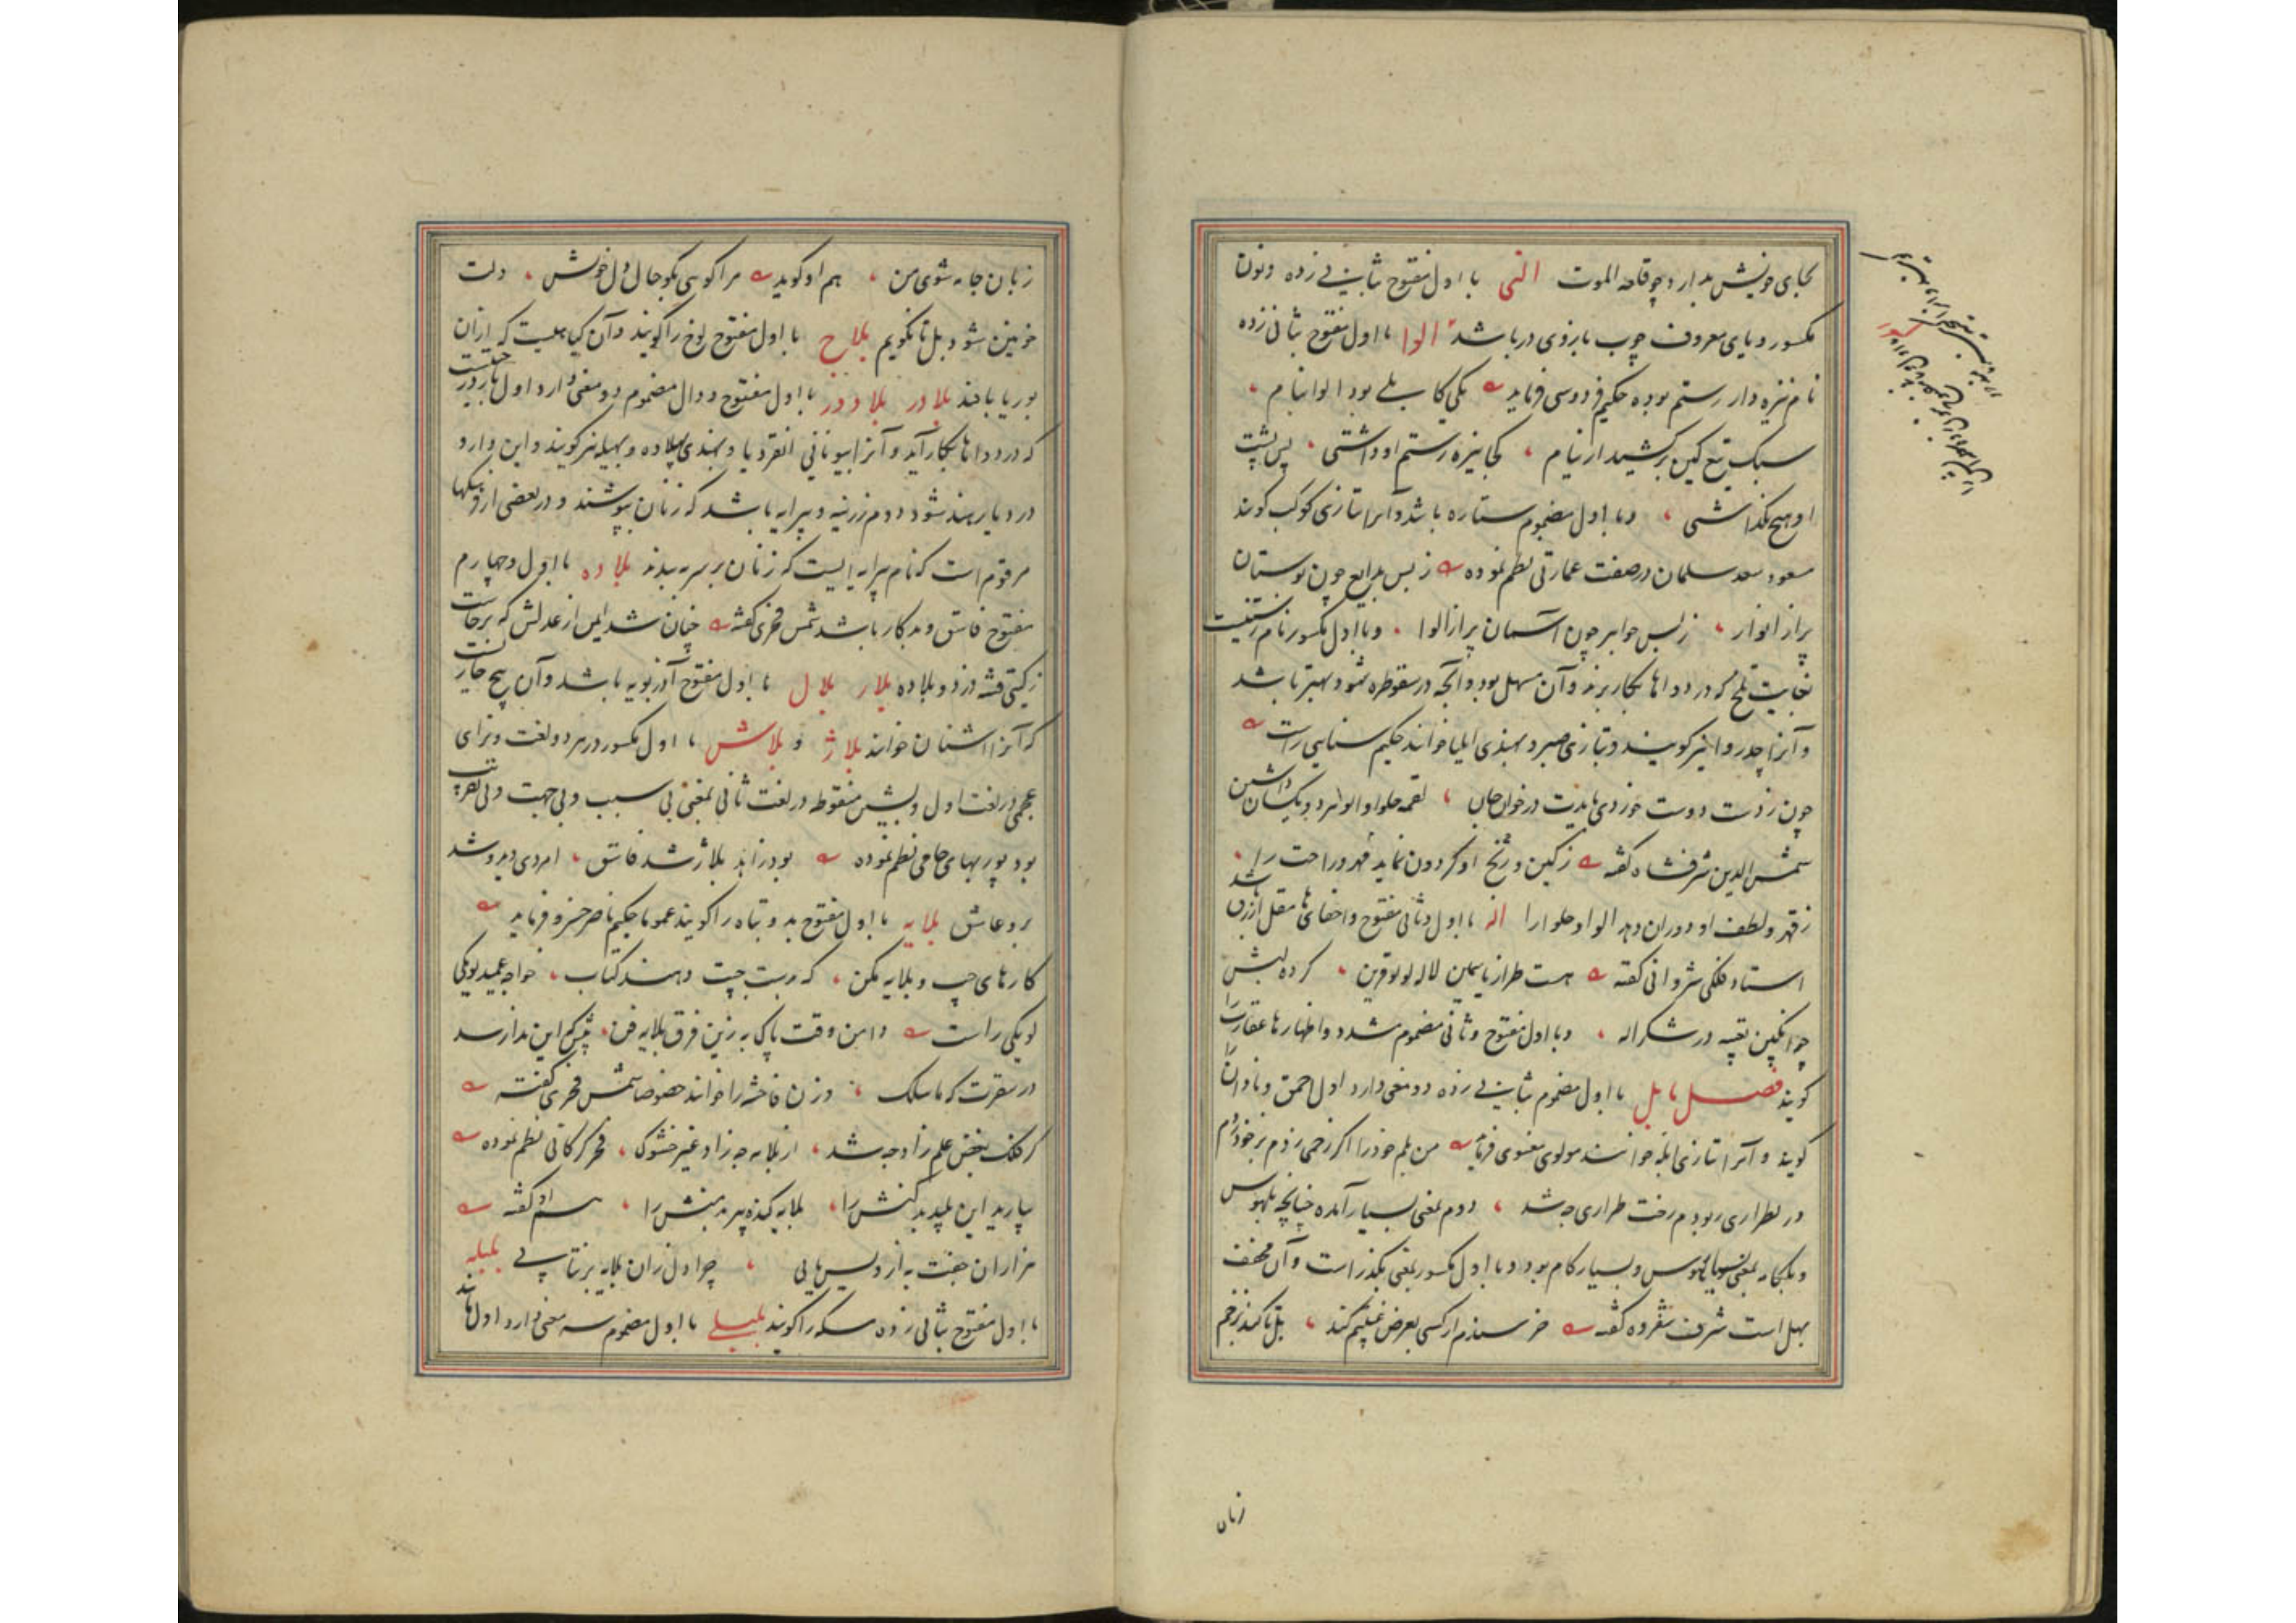 بجای خویش بدار و چو قلعه الموت النی با اول مفتوح بثانی زده و نون
مکسور و یای معروف چوب بازوی در باشد الوا با اول مفتوح بثانی زده
نام نیزه دار رستم بوده حکیم فردوسی فرماید یکی کابلی بود الوا بنام
سبک تیغ کین برکشید از نیام کجا نیزه رستم او داشتی پس پشت
او هیچ نگذاشتی و با اول مضموم ستاره باشد و آنرا بتازی کوکب گویند
مسعود سعد سلمان در صفت عمارتی نظم نموده ز بس بدایع چون بوستان
پر از انوار ز بس جواهر چون آسمان پر از الوا و با اول مکسور نام رستنیست
بغایت تلخ که در دواها بکار برند و آن مسهل بود و آنچه در سقوطره شود بهتر باشد
و آنرا چدروا نیز گویند و بتازی صبر و بهندی ایلیا خوانند حکیم سنایی راست
چون ز دست دوست خوردی بایدت در خوان جان لقمه حلوا و الوا هر دو یکسان داشتن
شمس الدین شرفشاه گفته ز کین و رنج او گردون نماید قهر و راحت را
ز قهر و لطف او دوران دهد الوا و حلوا را اله با اول و ثانی مفتوح و اخفای ها مقل ازرق باشد
استاد فلکی شروانی گفته هست طراز یاسمین لاله لولو قرین کرده لبش
چو انگبین تعبیه در شکر اله و با اول مفتوح و ثانی مضموم مشدد و اظهار ها عقاب را
گویند فصل با بل با اول مضموم بثانی زده دو معنی دارد اول احمق و نادان را
گویند و آنرا بتازی ابله خوانند مولوی معنوی فرماید من بلم خود را اگر زخمی زدم بر خود زدم
در بطراری ربودم رخت طراری چه شد دوم بمعنی بسیار آمده چنانچه بلهوس
و بلکامه بمعنی بسیار هوس و بسیار کام بود و با اول مکسور بمعنی بگذار است و آن مخفف
بهل است شرف شفروه گفته خرسندم ار کسی بعرض غمی کند بل تا کند بزخم
زبان
زبان جامه شوی من هم او گوید مرا گویی بگو حال دل خویش دلت
خونین شود بل تا نگویم بلاج با اول مفتوح لوخ را گویند و آن گیاهیست که از آن
بوریا بافند بلادر بلادور با اول مفتوح و دال مضموم دو معنی دارد اول بار درختیست
که در دواها بکار آید و آنرا بیونانی انقردیا و بهندی بهلاوه و بهیله نیز گویند و این دارو
در دیار هند شود دوم زرینه و پیرایه باشد که زنان بپوشند و در بعضی از فرهنگها
مرقوم است که نام پیرایه ایست که زنان بر سر بندند بلاده با اول و چهارم
مفتوح فاسق و بدکار باشد شمس فخری گفته چنان شد ایمن از عدلش که برخاست
ز گیتی فتنه دزد و بلاده بلار بلال با اول مفتوح آذربویه باشد و آن بیخ خاریست
که آنرا اشنان خوانند بلاژ و بلاش با اول مکسور در هر دو لغت و زای
عجمی در لغت اول و شین منقوطه در لغت ثانی بمعنی بی سبب و بی جهت و بی تقریب
بود پور بهای جامی نظم نموده بود زاهد بلاژ شد فاسق امردی دید و شد
برو عاشق بلایه با اول مفتوح بد و تباه را گویند عموما حکیم ناصر خسرو فرماید
کارهای چپ و بلایه مکن که بدست چپت دهند کتاب خواجه عمید لویکی
لویکی راست دامن وقت پاک به زین فرق بلایه فن پیش که این ندا رسد
در سقرت که ماسلک و زن فاحشه را خوانند خصوصا شمس فخری گفته
گر فلک بغض علم زاد چه شد از بلایه چه زاد غیر خشوک فخر گرگانی نظم نموده
بیارید این پلید بدکنش را بلایه گنده پیر بدمنش را هم او گفته
هزاران جفت به از ویس یابی چرا دل زان بلایه برنتابی بلبله
با اول مفتوح بثانی زده سکه را گویند بلبلی با اول مضموم سه معنی دارد اول